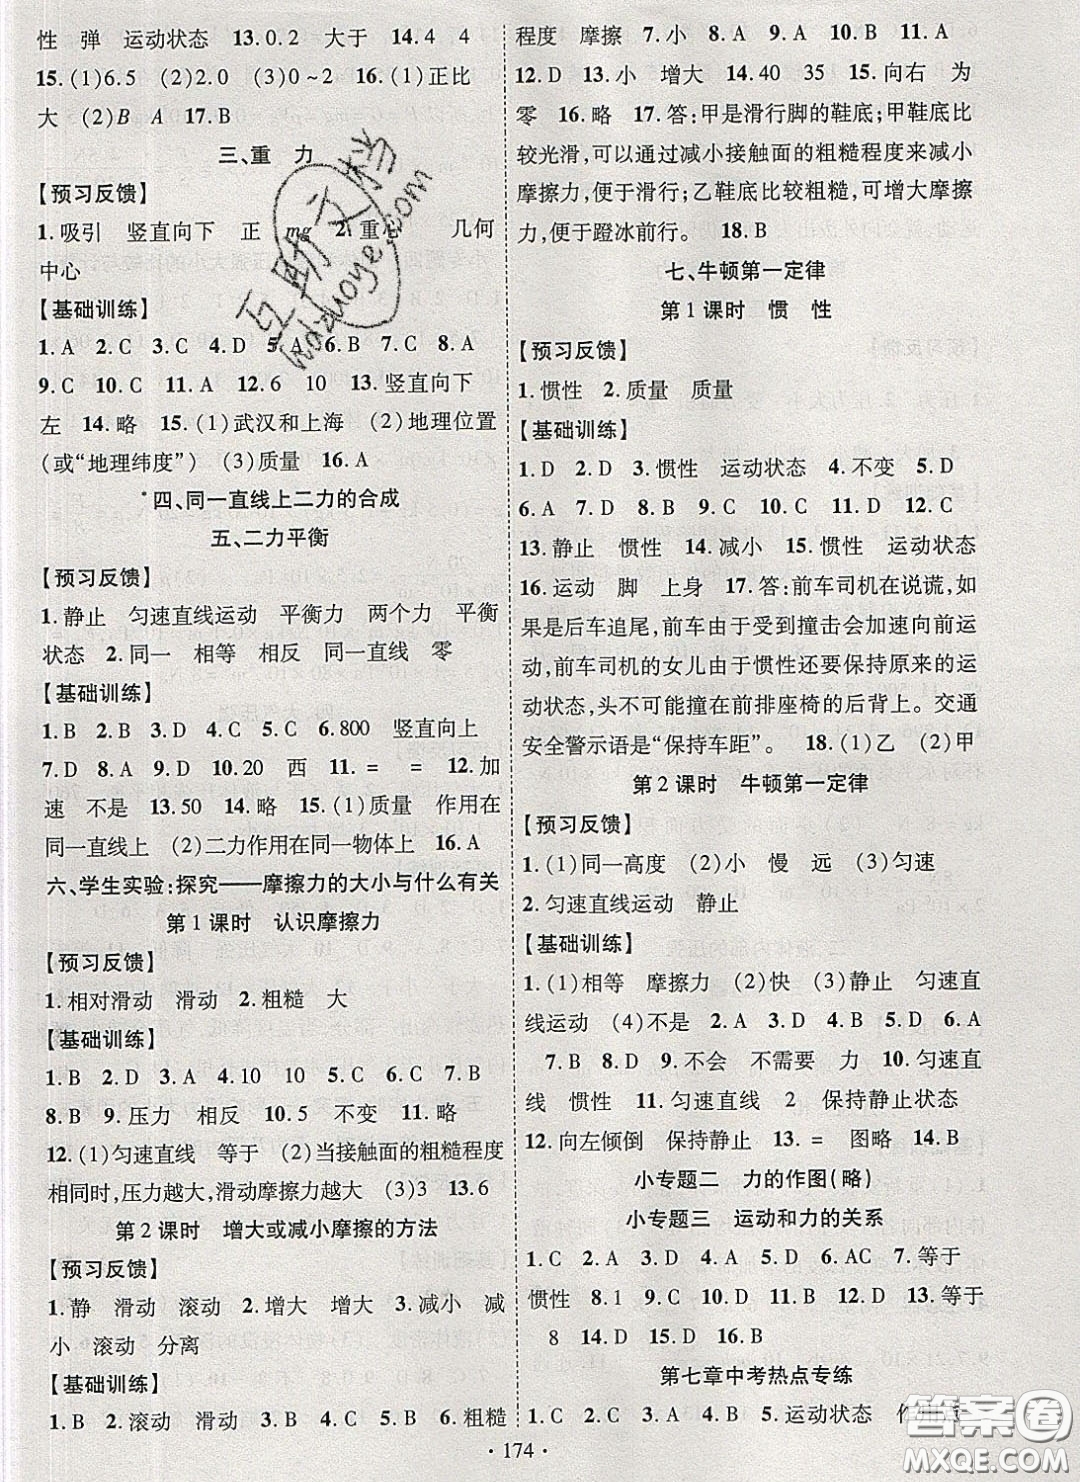 性 弹 运动状态 13.0.2 大于 14.4 4
15.(1)6.5 (2)2.0 (3)0~2 16.(1)正比
大 (2)B A 17.B
三、重 力
【预习反馈】
1.吸引 竖直向下 正 mg 2.重心 几何
中心
【基础训练】
1.A 2.C 3.C 4.D 5.A 6.B 7.C 8.A
9.C 10.C 11.A 12.6 10 13.竖直向下
左 14.略 15.(1)武汉和上海 (2)地理位置
(或“地理纬度”) (3)质量 16.A
四、同一直线上二力的合成
五、二力平衡
【预习反馈】
1.静止 匀速直线运动 平衡力 两个力 平衡
状态 2.同一 相等 相反 同一直线 零
【基础训练】
1.B 2.B 3.D 4.C 5.C 6.800 竖直向上
7.D 8.A 9.D 10.20 西 11.= = 12.加
速 不是 13.50 14.略 15.(1)质量 作用在
同一直线上 (2)二力作用在同一物体上 16.A
六、学生实验:探究——摩擦力的大小与什么有关
第1课时 认识摩擦力
【预习反馈】
1.相对滑动 滑动 2.粗糙 大
【基础训练】
1.B 2.D 3.A 4.10 10 5.C 6.C 7.B
8.B 9.压力 相反 10.5 不变 11.略
12.(1)匀速直线 等于 (2)当接触面的粗糙程度
相同时,压力越大,滑动摩擦力越大 (3)3 13.6
第2课时 增大或减小摩擦的方法
【预习反馈】
1.静 滑动 滚动 2.增大 增大 3.减小 减
小 滚动 分离
【基础训练】
1.B 2.滚动 滑动 3.C 4.B 5.C 6.粗糙
程度 摩擦 7.小 8.A 9.A 10.B 11.A
12.D 13.小 增大 14.40 35 15.向右 为
零 16.略 17.答:甲是滑行脚的鞋底;甲鞋底比
较光滑,可以通过减小接触面的粗糙程度来减小
摩擦力,便于滑行;乙鞋底比较粗糙,可增大摩擦
力,便于蹬冰前行。 18.B
七、牛顿第一定律
第1课时 惯 性
【预习反馈】
1.惯性 2.质量 质量
【基础训练】
1.D 2.D 3.惯性 运动状态 4.不变 5.D
6.A 7.D 8.D 9.C 10.C 11.D 12.C
13.静止 惯性 14.减小 15.惯性 运动状态
16.运动 脚 上身 17.答:前车司机在说谎,如
果是后车追尾,前车由于受到撞击会加速向前运
动,前车司机的女儿由于惯性还要保持原来的运
动状态,头不可能碰到前排座椅的后背上。交通
安全警示语是“保持车距”。 18.(1)乙 (2)甲
第2课时 牛顿第一定律
【预习反馈】
1.(1)同一高度 (2)小 慢 远 (3)匀速
2.匀速直线运动 静止
【基础训练】
1.(1)相等 摩擦力 (2)快 (3)静止 匀速直
线运动 (4)不是 2.A 3.D 4.B 5.D 6.A
7.B 8.D 9.不会 不需要 力 10.匀速直
线 惯性 11.匀速直线 2 保持静止状态
12.向左倾倒 保持静止 13.= 图略 14.B
小专题二 力的作图(略)
小专题三 运动和力的关系
1.C 2.A 3.D 4.D 5.D 6.AC 7.等于
惯性 8.1 9.C 10.C 11.B 12.C 13.等于
8 14.D 15.D 16.B
第七章中考热点专练
1.C 2.C 3.B 4.B 5.运动状态
· 174 ·
互助文档
hdzuoye.com
答案圈
MXQE.COM